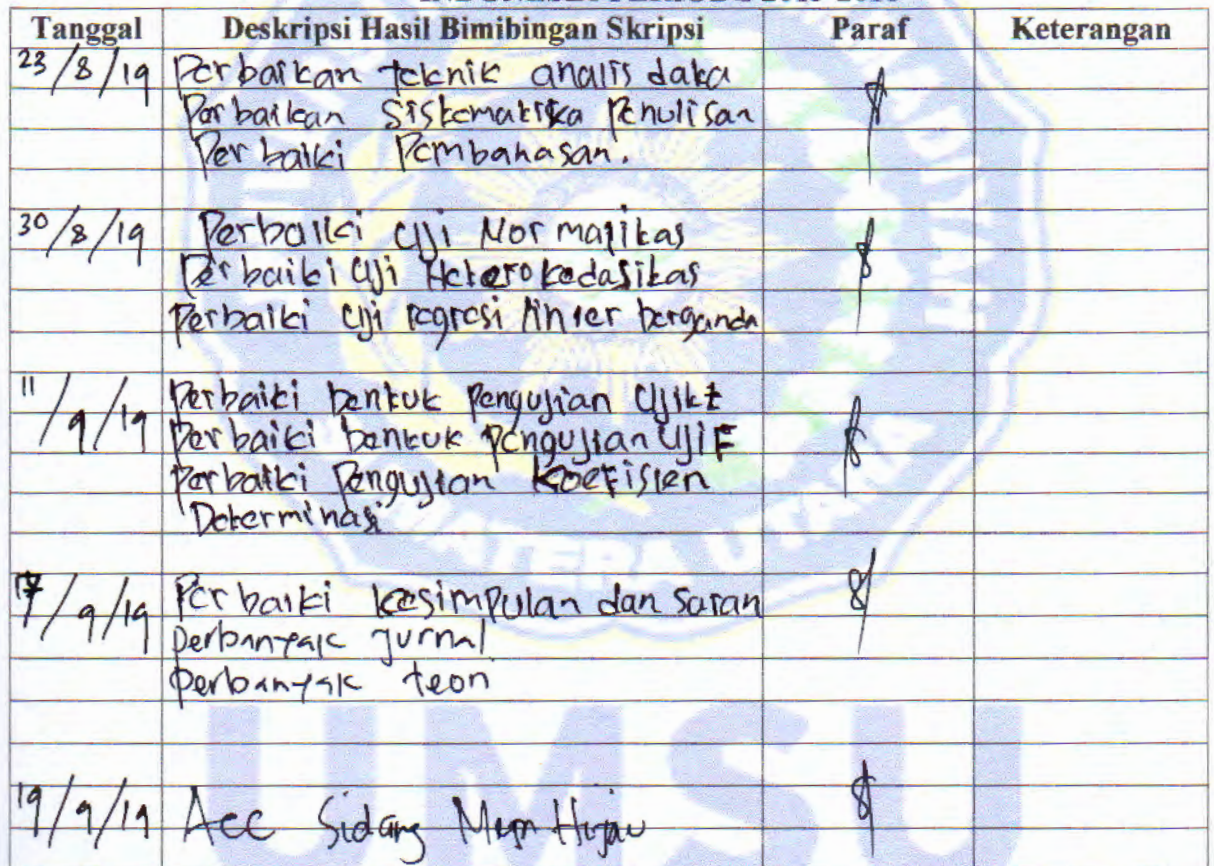 Tanggal Deskripsi Hasil Bimibingan Skripsi Paraf Keterangan
23/8/19 Perbaikan teknik analis data
Perbaikan Sistematika Penulisan
Perbaiki Pembahasan.
30/8/19 Perbaiki Uji Normalitas
Perbaiki Uji Heterokedasitas
Perbaiki Uji regresi linier berganda
11/9/19 Perbaiki bentuk Pengujian Uji t
Perbaiki bentuk Pengujian Uji F
Perbaiki Pengujian Koefisien
Determinasi
17/9/19 Perbaiki kesimpulan dan Saran
Perbanyak Jurnal
Perbanyak teori
19/9/19 Acc Sidang Meja Hijau
MATERA UTARA
UMSU